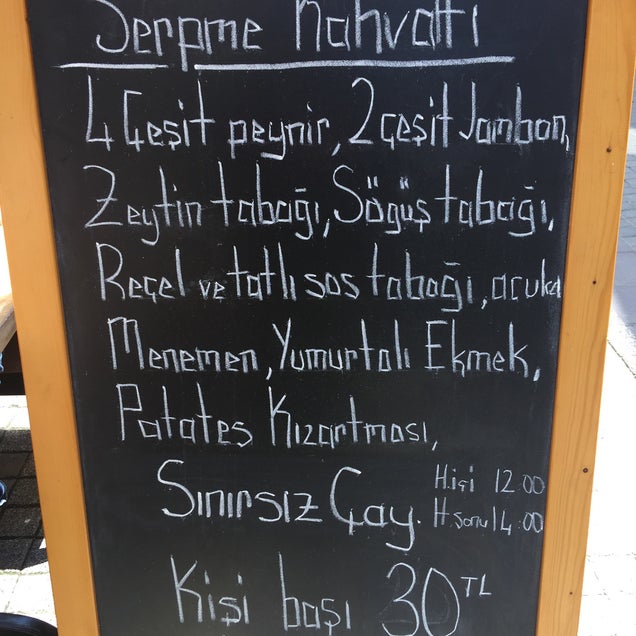 Serpme Kahvaltı
4 Çeşit peynir, 2 çeşit Jambon,
Zeytin tabağı, Söğüş tabağı,
Reçel ve tatlı sos tabağı, acuka
Menemen, Yumurtalı Ekmek,
Patates Kızartması,
Sınırsız Çay. H.içi 12.00
H.sonu 14:00
Kişi başı 30 TL